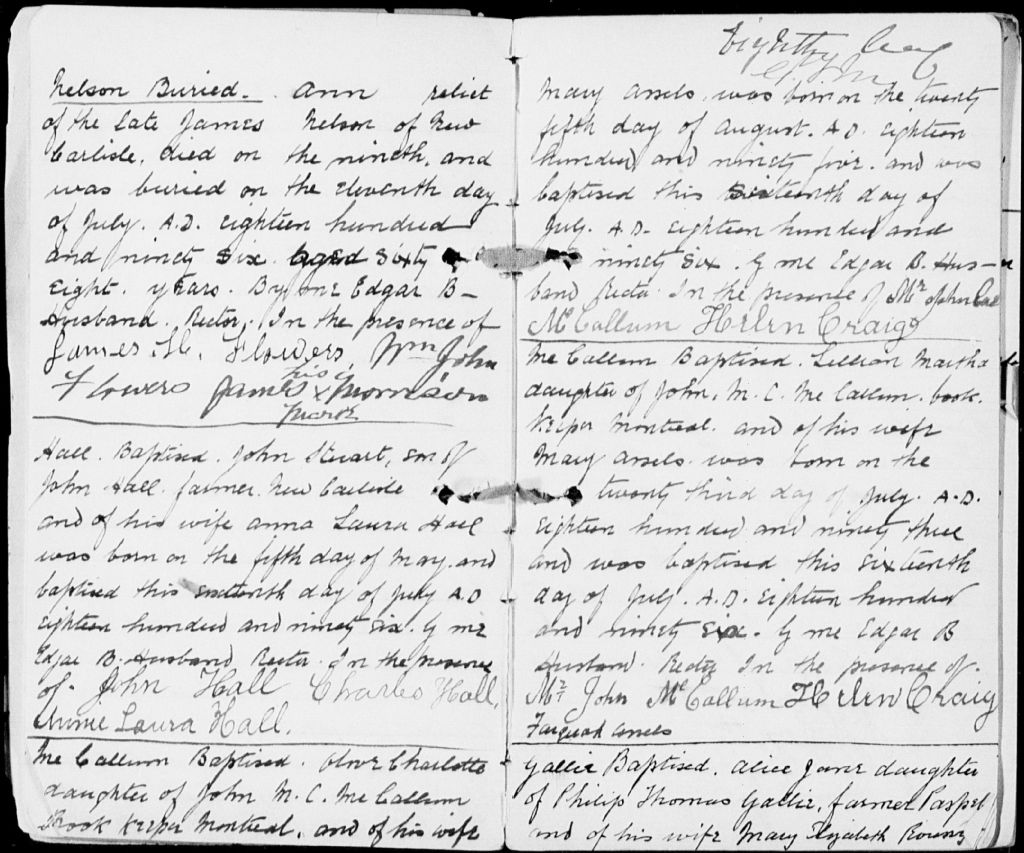 Nelson Buried. Ann relict
of the late James Nelson of New
Carlisle, died on the nineth, and
was buried on the eleventh day
of July. A.D. Eighteen hundred
and ninety six. aged sixty
Eight. years. By me Edgar B-
Husband. Rector. In the presence of
James. H. Flowers, Wm John
Flowers James his x Morrison
mark
Hall. Baptised. John Stuart, son of
John Hall. farmer. New Carlisle
and of his wife Anna Laura Hall
was born on the fifth day of May. and
baptised this sixteenth day of July A.D
Eighteen hundred and ninety six. By me
Edgar B. Husband, Rector. In the presence
of. John Hall Charles Hall,
Annie Laura Hall.
Mc Callum Baptised. Olive Charlotte
daughter of John M. C. Mc Callum
Book Keeper Montreal, and of his wife
Eighty
Mary Assels. was born on the twenty
fifth day of August. A.D. Eighteen
hundred and ninety five. and was
baptised this sixteenth day of
July. A.D. Eighteen hundred and
ninety six. By me Edgar B. Hus-
band Rector. In the presence of Mr. John
McCallum Helen Craig
Mc Callum Baptised. Lillian Martha
daughter of John. M. C. Mc Callum. book.
Keeper Montreal. and of his wife
Mary Assels. was born on the
twenty third day of July. A.D.
Eighteen hundred and ninety three
and was baptised this sixteenth
day of July. A.D. Eighteen hundred
and ninety six. By me Edgar B
Husband. Rector In the presence of.
Mr. John McCallum Helen Craig
Gallie Baptised. Alice Jane daughter
of Philip Thomas Gallie, farmer Paspel
and of his wife Mary Elizabeth